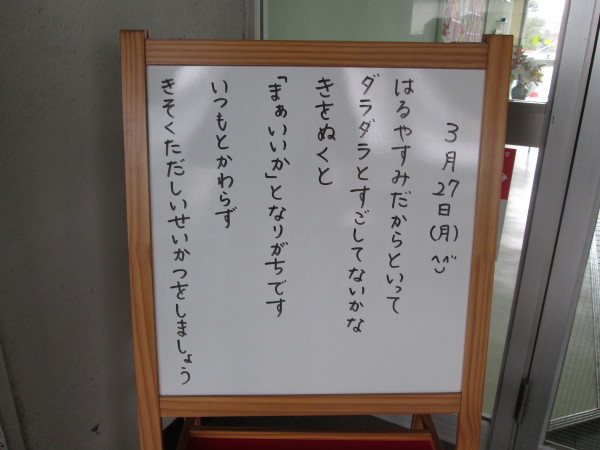 3月27日(月)^^
はるやすみだからといって
ダラダラとすごしてないかな
きをぬくと
「まぁいいか」となりがちです
いつもとかわらず
きそくただしいせいかつをしましょう